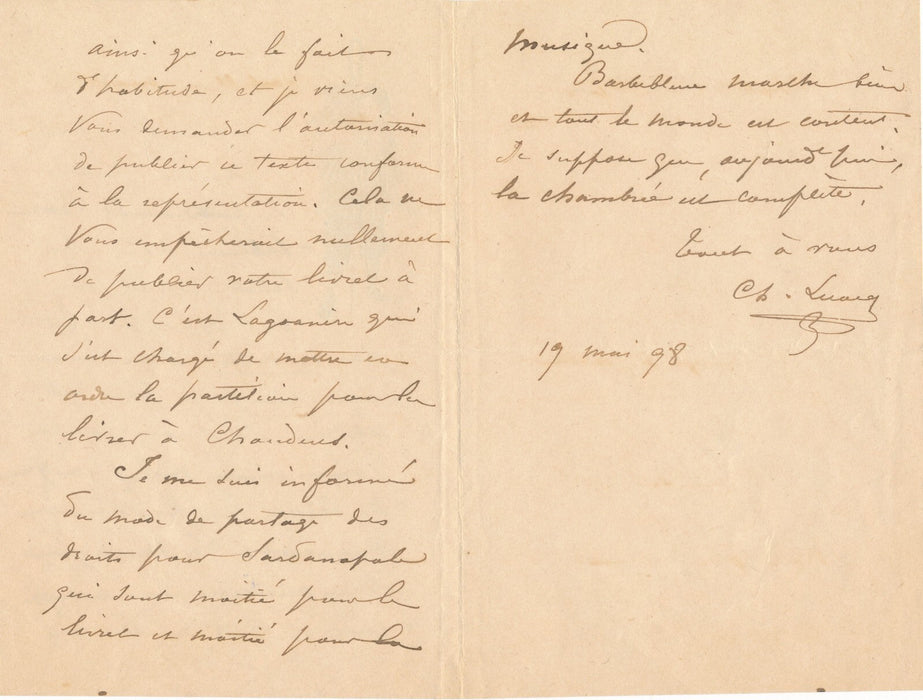 ainsi qu'on le fait
d'habitude, et je viens
vous demander l'autorisation
de publier ce texte conforme
à la représentation. Cela ne
vous empêcherait nullement
de publier votre livret à
part. C'est Lagoanère qui
s'est chargé de mettre en
ordre la partition pour la
livrer à Choudens.
Je me suis informé
du mode de partage des
droits pour Sardanapale
qui sont moitié pour le
livret et moitié pour la
musique.
Barbebleue marche bien
et tout le monde est content.
Je suppose que, aujourd'hui,
la chambrée est complète.
Tout à vous
Ch. Lecocq
19 mai 98